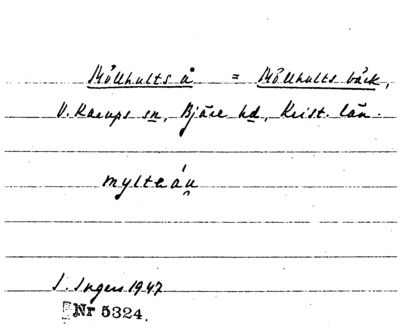 Möllhults å = Möllhults bäck,
V. Karups sn, Bjäre hd, Krist. län.
mylteá̯u
I. Ingers 1947
Nr 5324.